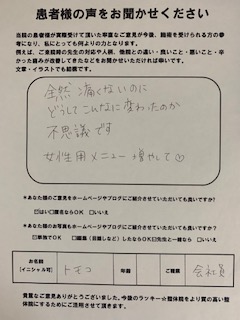 患者様の声をお聞かせください
当院の患者様が実際受けて頂いた率直なご意見が今後、施術を受けられる方の参
考になり、私にとっても何よりの力となります。
例えば、ご来院時の先生の対応や人柄、他院との違い・良いこと・悪いこと・辛
かった痛みが改善してきたなどをお聞かせいただければ幸いです。
文章・イラストでも結構です。
全然痛くないのに
どうしてこんなに変わったのか
不思議です
女性用メニュー増やして♡
*あなた様のご意見をホームページやブログにご紹介させていただいても良いですか?
□はい □匿名ならOK □いいえ
*あなた様のお写真もホームページやブログにご紹介させていただいても良いですか?
□単独でOK □編集(目隠しなど)したならOK □先生と一緒なら □いいえ
お名前
(イニシャル可)
トモコ
年齢
ご職業
会社員
貴重なご意見ありがとうございました。今後のラッキー☆整体院をより質の高い整
体院にするためにご活用させて頂きます。